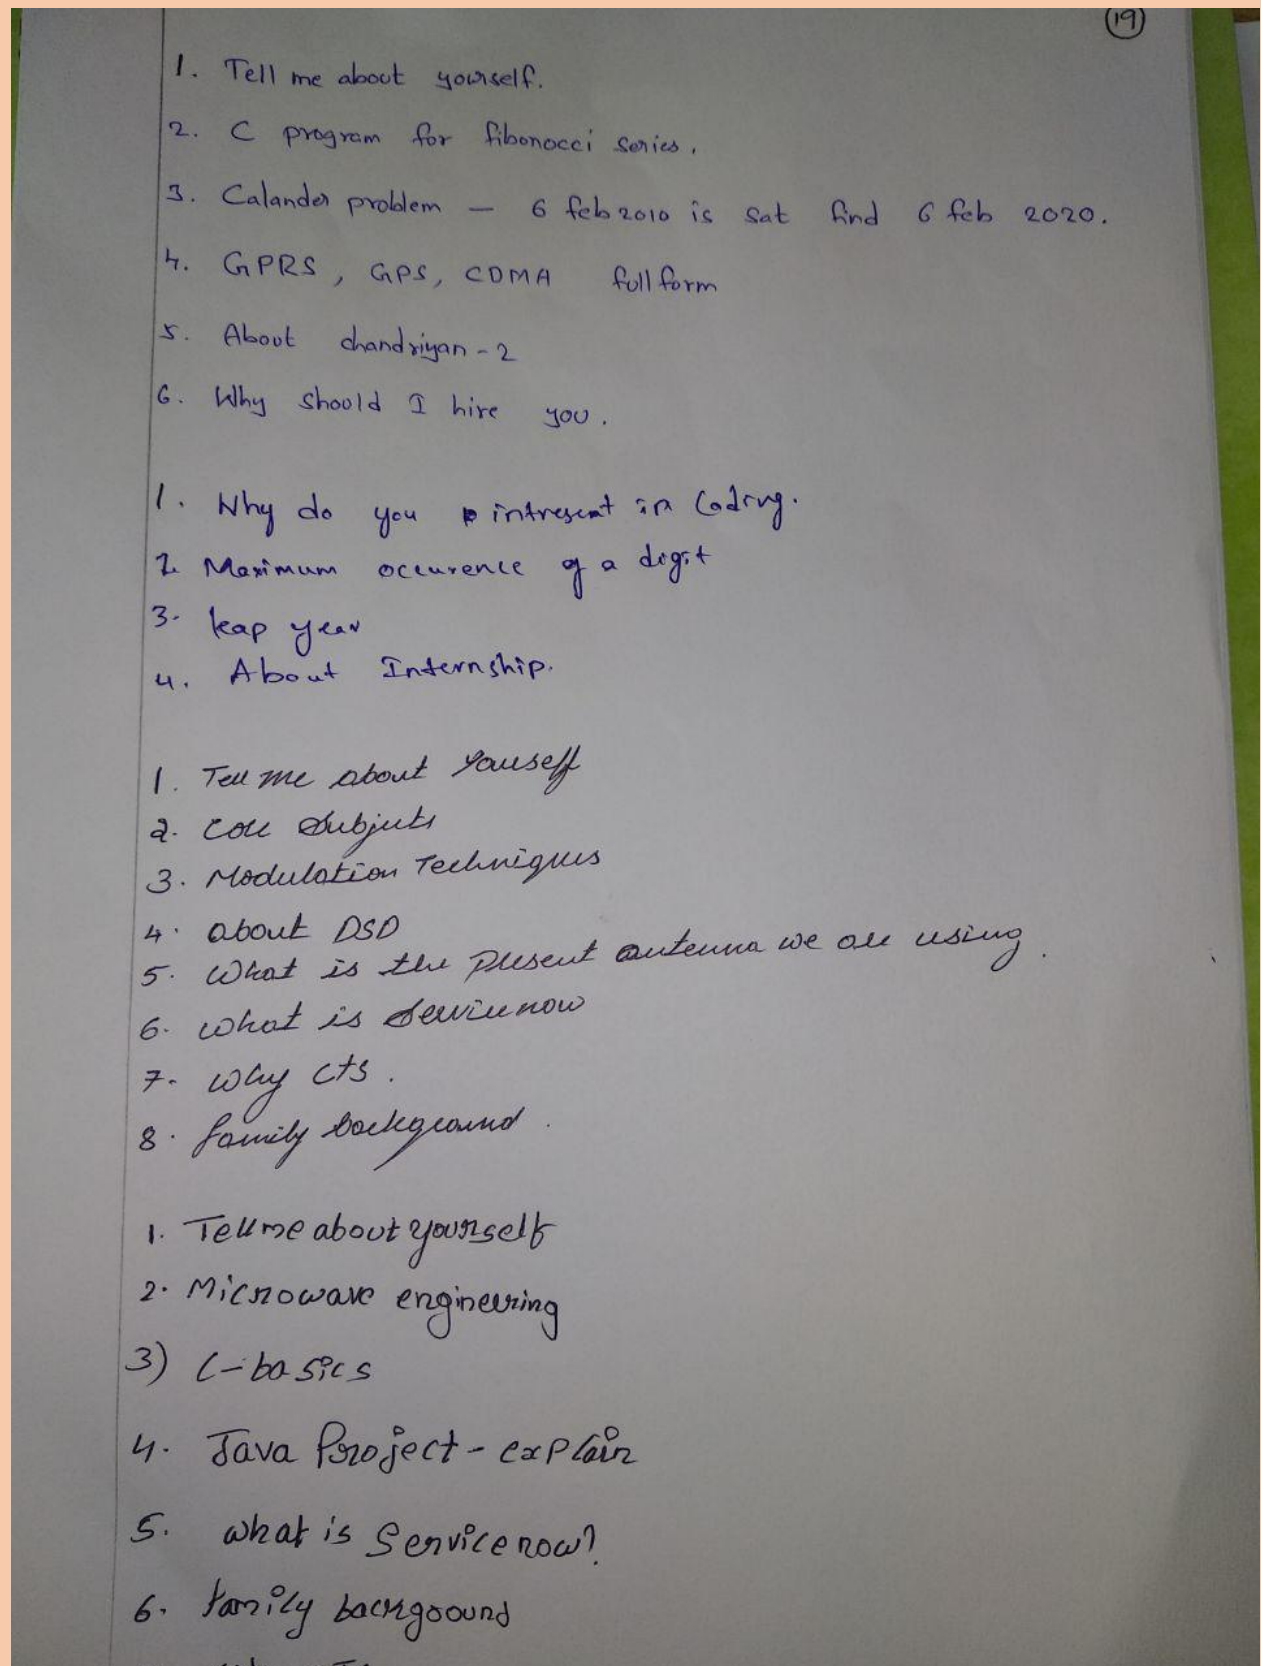 19
1. Tell me about yourself.
2. C program for fibonocci series.
3. Calander problem - 6 feb 2010 is sat find 6 feb 2020.
4. GPRS, GPS, CDMA full form
5. About chandriyan-2
6. Why should I hire you.
1. Why do you intresent in Coding.
2. Maximum occurence of a digit
3. leap year
4. About Internship.
1. Tell me about Youself
2. core Subjects
3. Modulation Techniques
4. about DSD
5. What is the Present antenna we are using.
6. what is Servicenow
7. why cts.
8. family background.
1. Tell me about yourself
2. Microwave engineering
3) C-basics
4. Java Project - explain
5. what is Servicenow?
6. family background